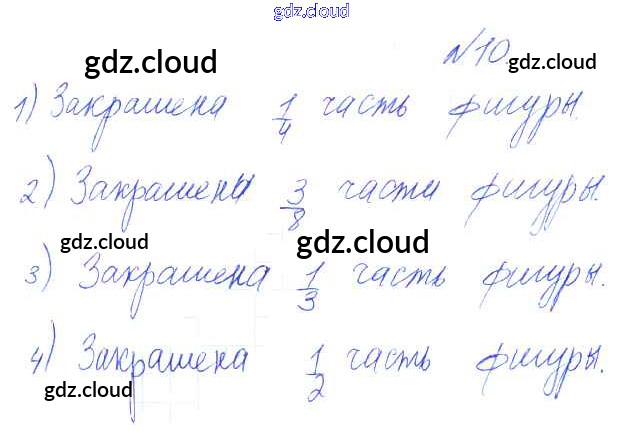 gdz.cloud
gdz.cloud №10 gdz.cloud
1) Закрашена 1/4 часть фигуры.
2) Закрашены 3/8 части фигуры.
gdz.cloud gdz.cloud
3) Закрашена 1/3 часть фигуры.
4) Закрашена 1/2 часть фигуры.
gdz.cloud gdz.cloud